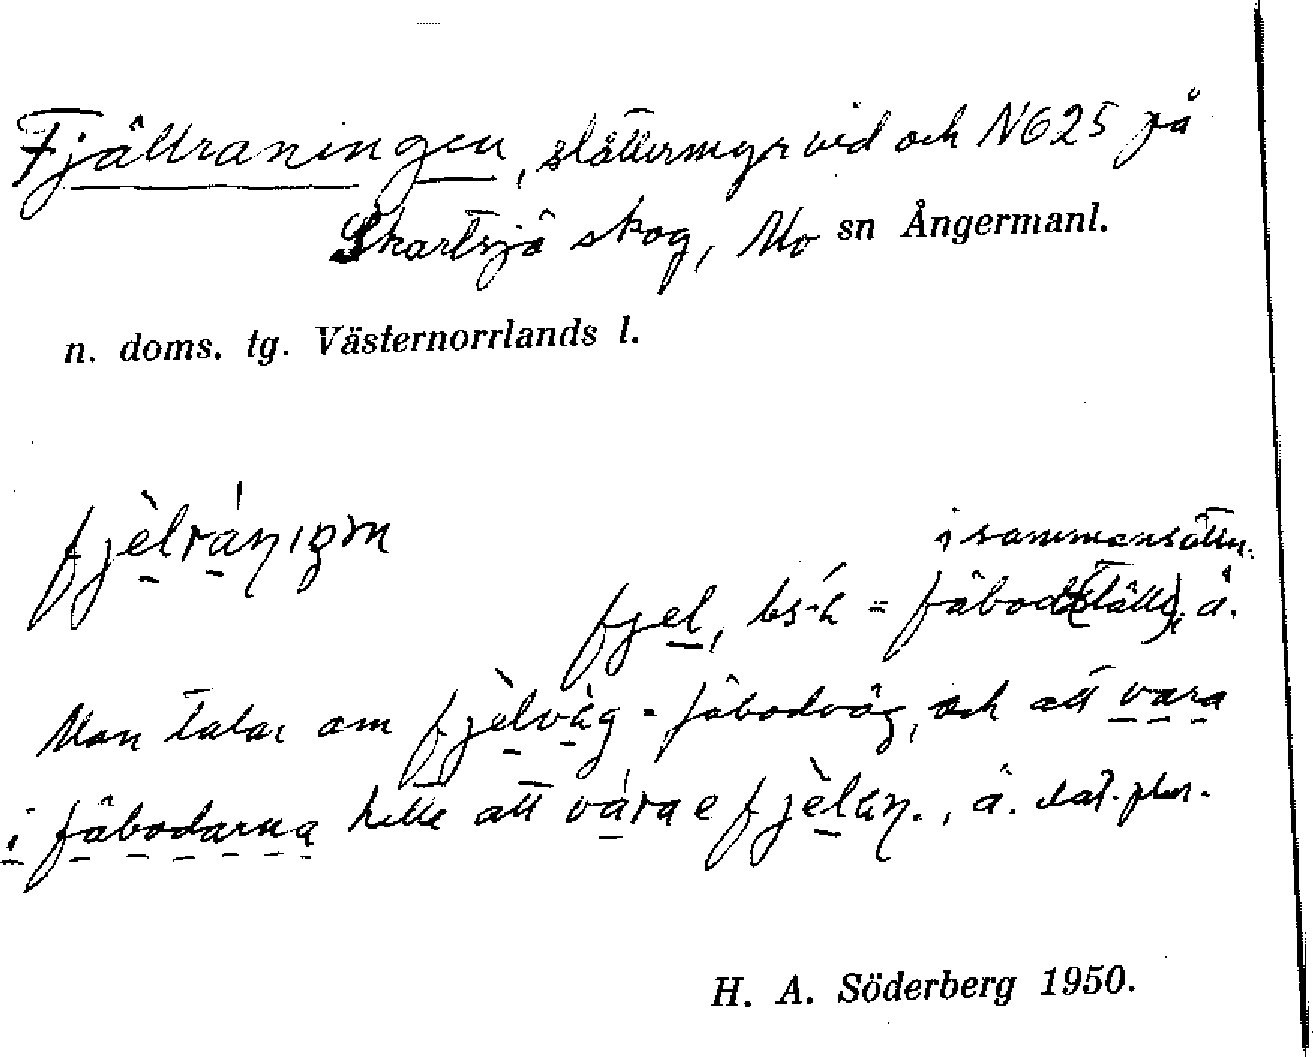 Fjällraningen, slåttermyr vid och N625 på
Skortsjö skog, Mo sn Ångermanl.
n. doms. tg. Västernorrlands l.
fjèlráṇiŋən
i sammansättn.
fjel, bs-h = fäbod(ställe), ä.
Man talar om fjèlvàg - fäbodväg, och att vara
i fäbodarna hette att vára e fjèlaṇ., ä. dat. plur.
H. A. Söderberg 1950.